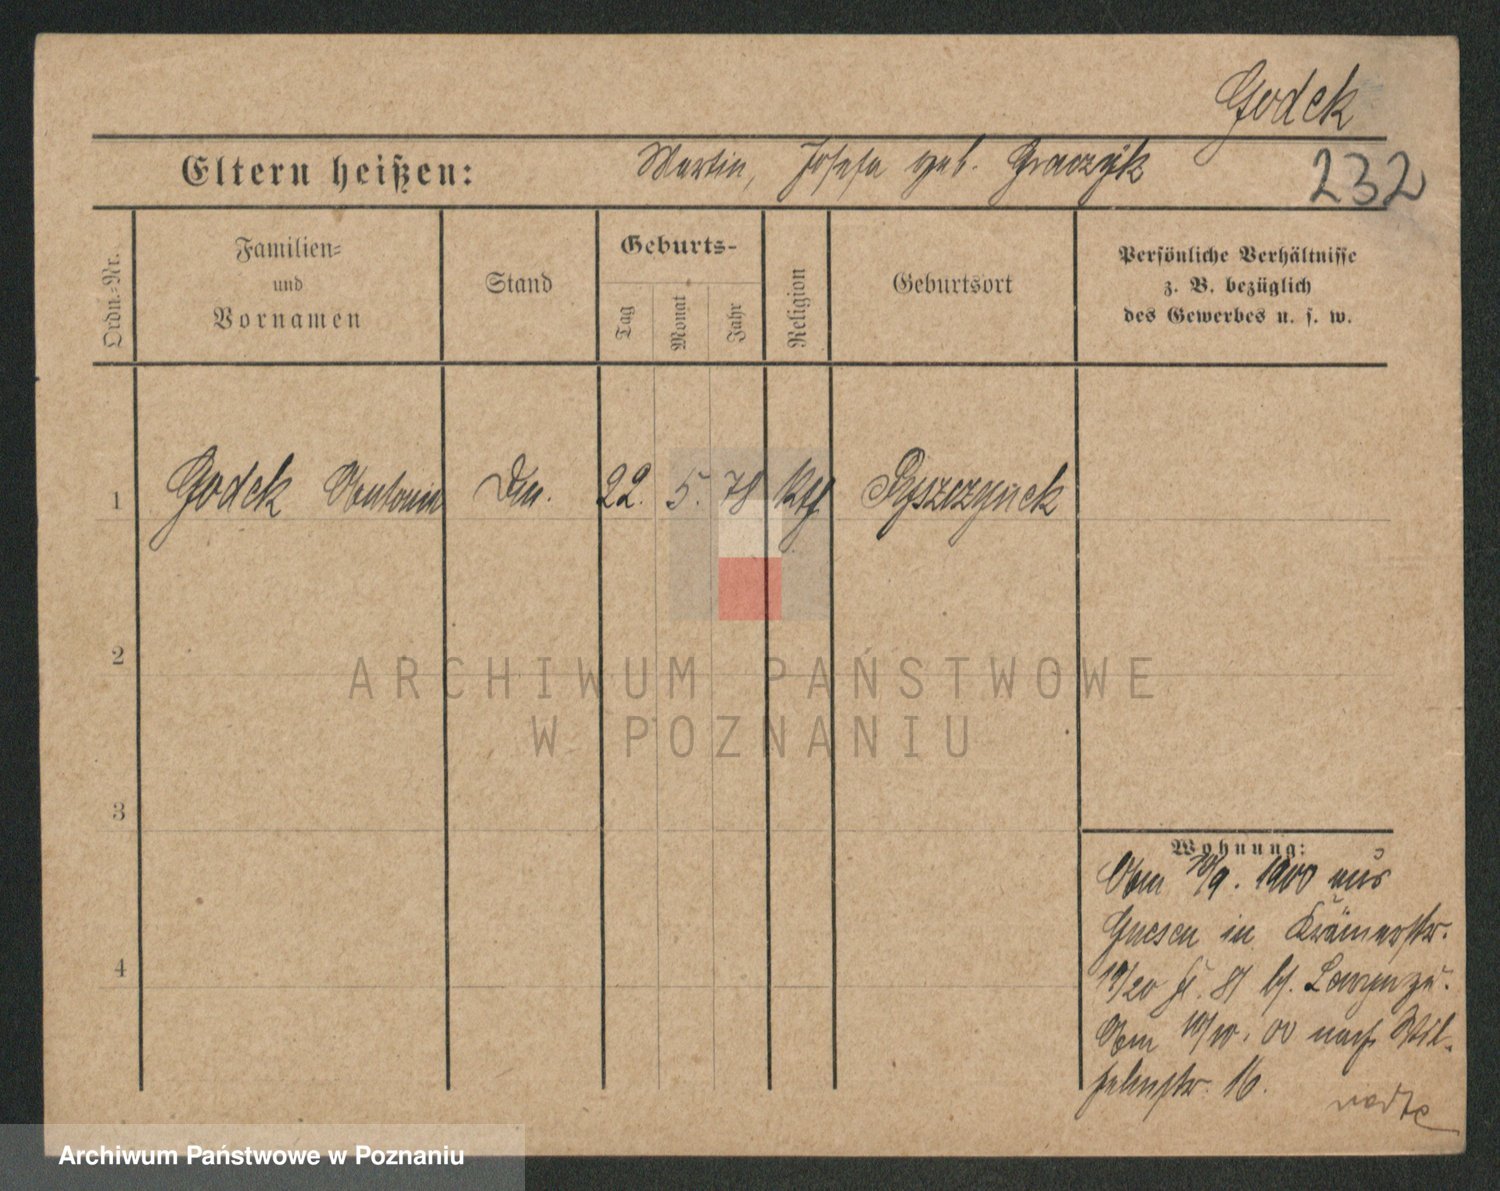 Godek
Eltern heißen: Martin, Josefa geb. Graczyk
232
Ordn.-Nr.
Familien-
und
Vornamen
Stand
Geburts-
Tag
Monat
Jahr
Religion
Geburtsort
Persönliche Verhältnisse
z. B. bezüglich
des Gewerbes u. s. w.
1 Godek Antonie Dm. 22. 5. 78 kth Pyszczynek
2
ARCHIWUM PAŃSTWOWE
W POZNANIU
3
Wohnung:
Am /9. 1900 aus
Gnesen in Krämerstr.
19/20 bei
Am 10/10. 00 nach Wil-
helmstr. 16.
4
Archiwum Państwowe w Poznaniu